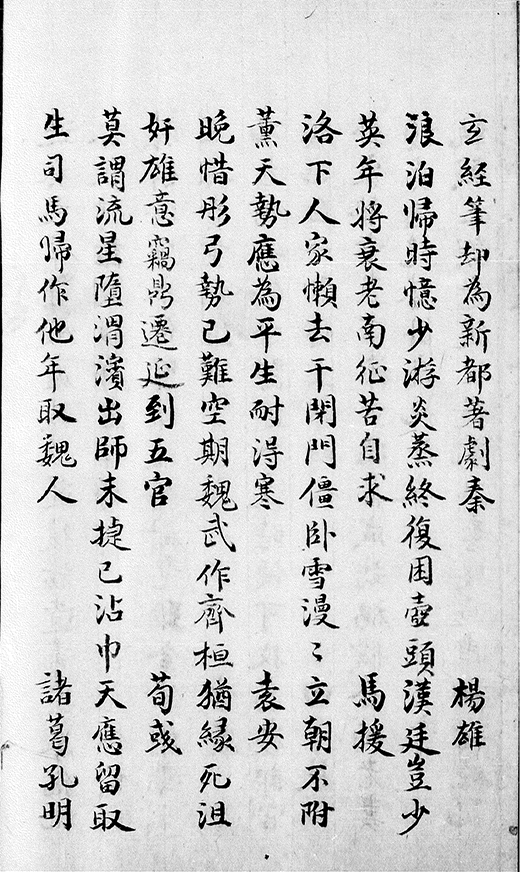 玄經筆却為新都著劇秦　楊雄
浪泊歸時憶少游炎蒸終復困壺頭漢廷豈少
英年將衰老南征苦自求　馬援
洛下人家懶去干閉門僵卧雪漫〻立朝不附
薰天勢應為平生耐得寒　袁安
晚惜彤弓勢已難空期魏武作齊桓猶緣死沮
奸雄意竊鼎遷延到五官　荀彧
莫謂流星墮渭濱出師未捷已沾巾天應留取
生司馬歸作他年取魏人　諸葛孔明